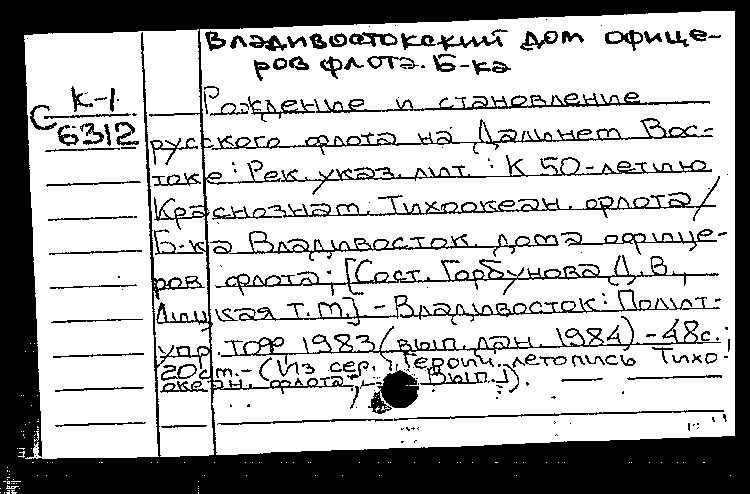 Владивостокский дом офице-
ров флота. Б-ка
К-1
С 6312
Рождение и становление
русского флота на Дальнем Вос-
токе : Рек. указ. лит. : К 50-летию
Краснознам. Тихоокеан. флота /
Б-ка Владивосток. дома офице-
ров флота; [Сост. Горбунова Д. В.,
Липкая Т.М.]. - Владивосток: Полит.
упр. ТОФ 1983 (вып. дан. 1984) - 48 с.;
20 см. - (Из сер.: Героич. летопись Тихо-
океан. флота; Вып. 1).